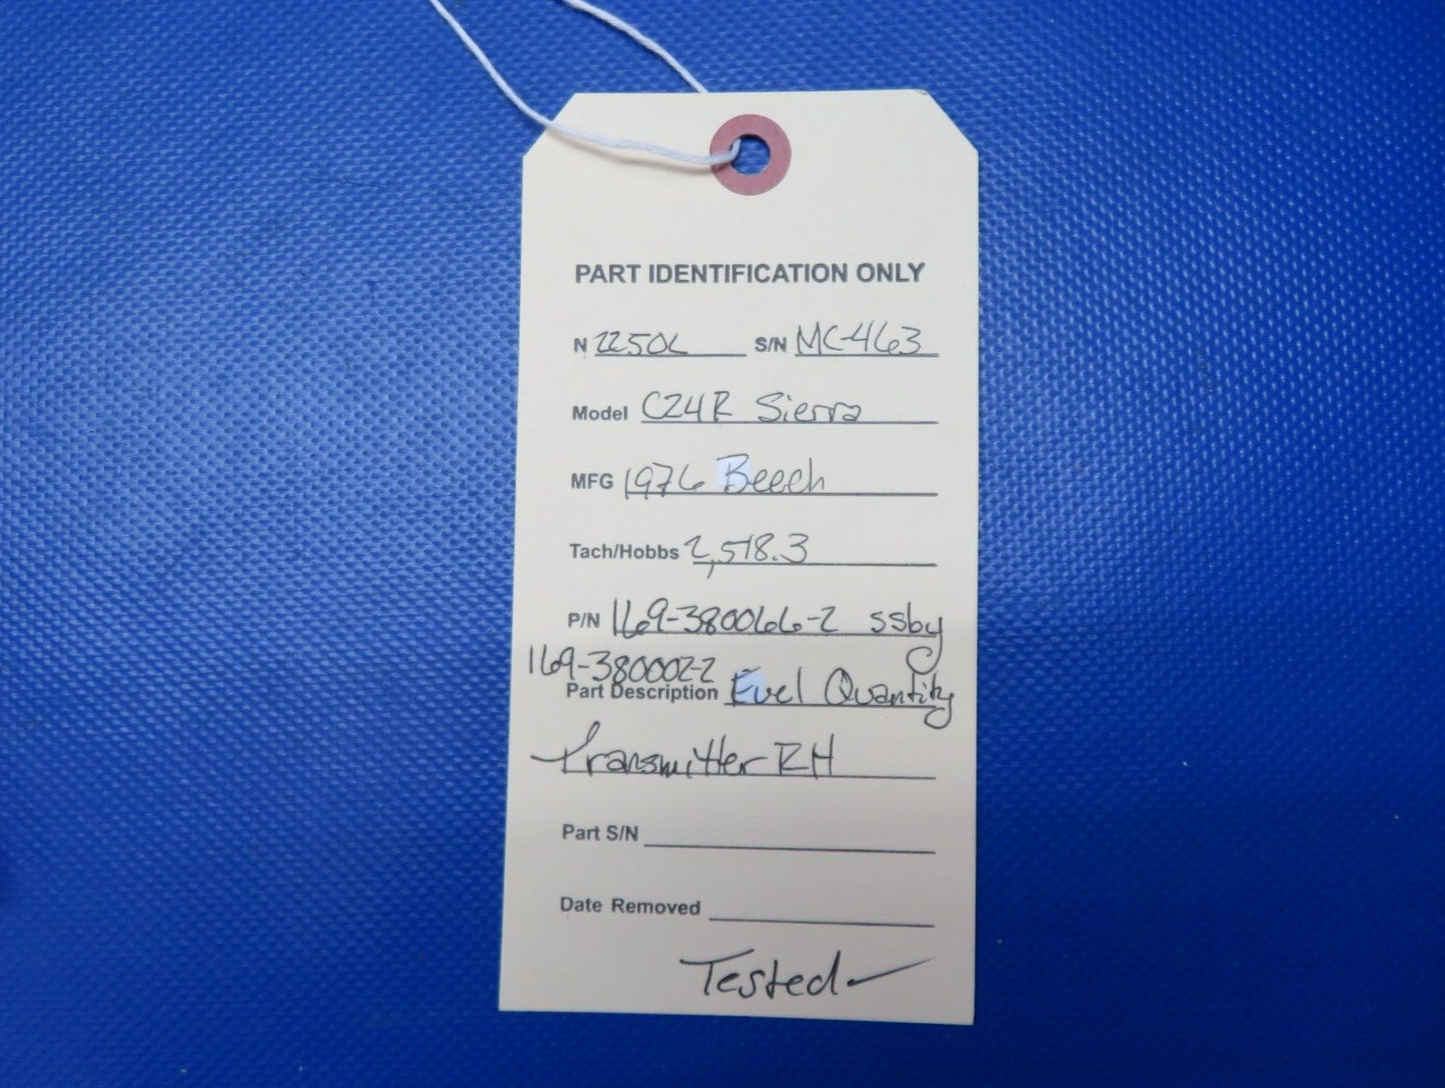 PART IDENTIFICATION ONLY
N 2250L S/N MC-463
Model C24R Sierra
MFG 1976 Beech
Tach/Hobbs 2,518.3
P/N 169-380066-2 ssby
169-380002-2
Part Description Fuel Quantity
Transmitter RH
Part S/N
Date Removed
Tested